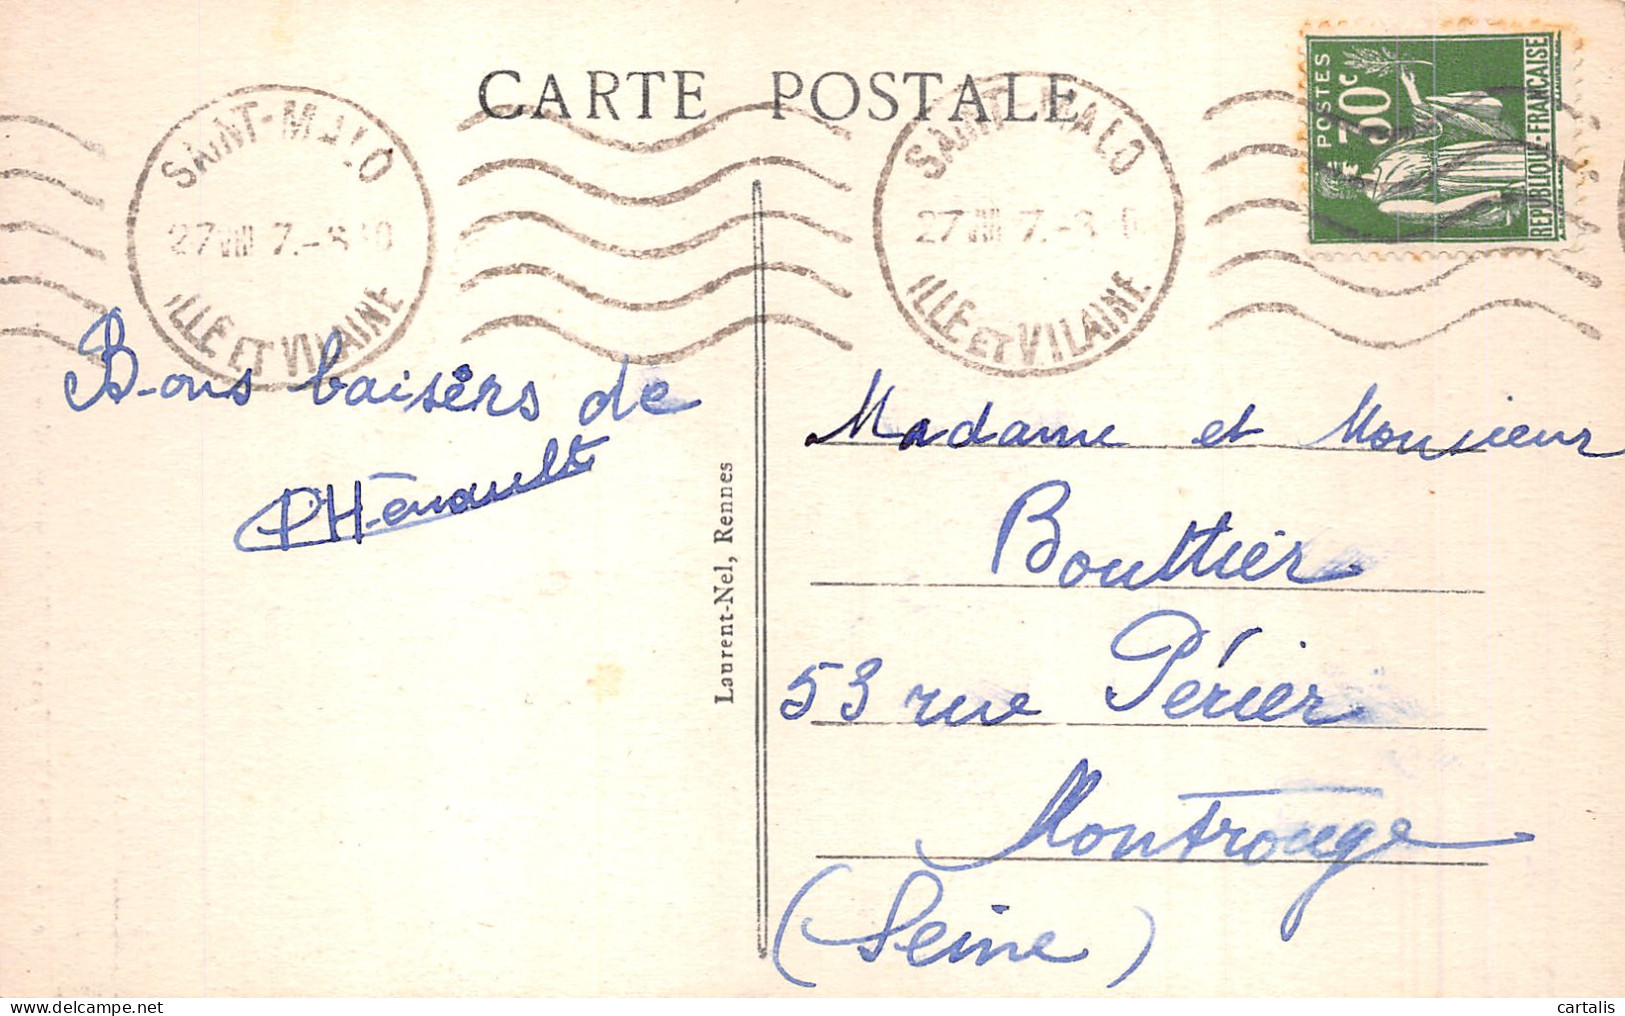 CARTE POSTALE
SAINT-MALO
27 VIII 7.-8 0
ILLE ET VILAINE
SAINT-MALO
27 VIII 7.-8 0
ILLE ET VILAINE
POSTES
30c
RÉPUBLIQUE-FRANÇAISE
Bons baisers de
PHénault
Laurent-Nel, Rennes
Madame et Monsieur
Bouttier
53 rue Périer
Montrouge
(Seine)
cartalis